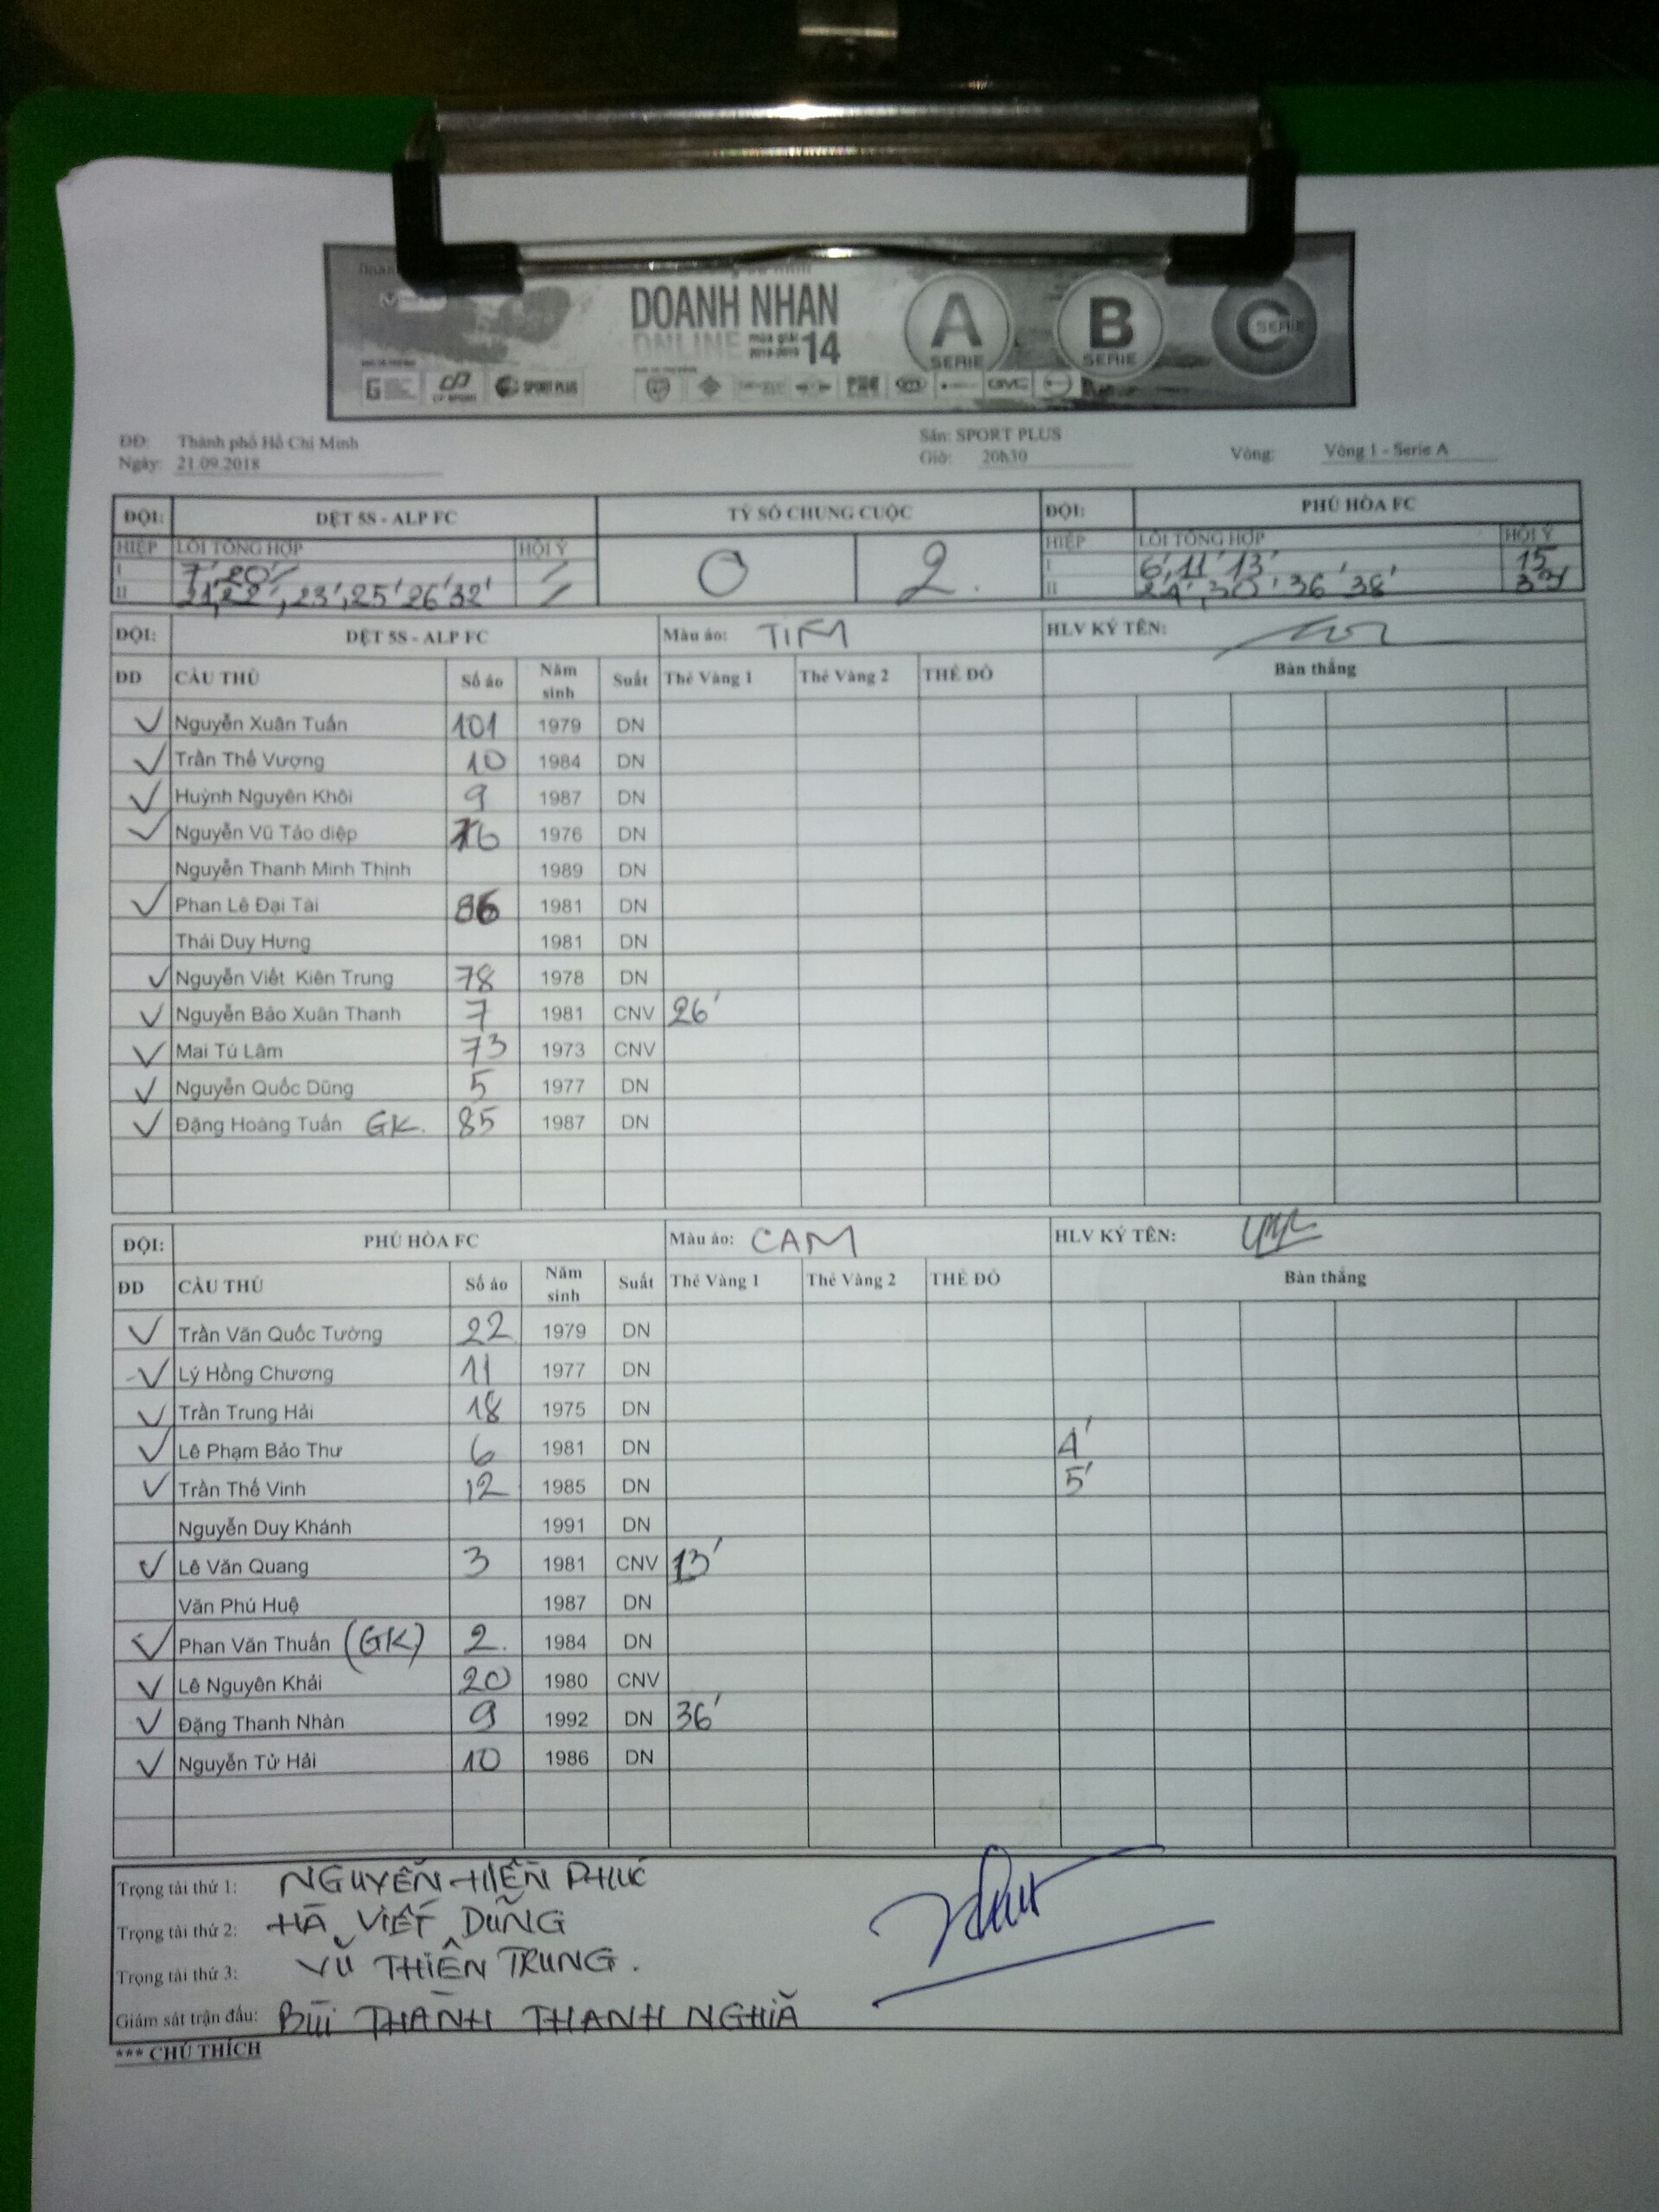 DOANH NHAN
ONLINE mùa giải 2018-2019 14
A SERIE
B SERIE
C SERIE
SPORT PLUS
ĐĐ: Thành phố Hồ Chí Minh Sân: SPORT PLUS
Ngày: 21.09.2018 Giờ: 20h30 Vòng: Vòng 1 - Serie A
ĐỘI: DỆT 5S - ALP FC TỶ SỐ CHUNG CUỘC ĐỘI: PHÚ HÒA FC
HIỆP LỖI TỔNG HỢP HỘI Ý 0 2. HIỆP LỖI TỔNG HỢP HỘI Ý
I 7', 20' I 6', 11' 13' 15
II 21', 22', 23', 25' 26' 32' II 24', 30' 36' 38' 33'
ĐỘI: DỆT 5S - ALP FC Màu áo: TIM HLV KÝ TÊN:
ĐD CẦU THỦ Số áo Năm sinh Suất Thẻ Vàng 1 Thẻ Vàng 2 THẺ ĐỎ Bàn thắng
Nguyễn Xuân Tuấn 101 1979 DN
Trần Thế Vượng 10 1984 DN
Huỳnh Nguyên Khôi 9 1987 DN
Nguyễn Vũ Tảo diệp 76 1976 DN
Nguyễn Thanh Minh Thịnh 1989 DN
Phan Lê Đại Tài 86 1981 DN
Thái Duy Hưng 1981 DN
Nguyễn Viết Kiên Trung 78 1978 DN
Nguyễn Bảo Xuân Thanh 7 1981 CNV 26'
Mai Tú Lâm 73 1973 CNV
Nguyễn Quốc Dũng 5 1977 DN
Đặng Hoàng Tuấn GK. 85 1987 DN
ĐỘI: PHÚ HÒA FC Màu áo: CAM HLV KÝ TÊN:
ĐD CẦU THỦ Số áo Năm sinh Suất Thẻ Vàng 1 Thẻ Vàng 2 THẺ ĐỎ Bàn thắng
Trần Văn Quốc Tường 22 1979 DN
Lý Hồng Chương 11 1977 DN
Trần Trung Hải 18 1975 DN
Lê Phạm Bảo Thư 6 1981 DN 4'
Trần Thế Vinh 12 1985 DN 5'
Nguyễn Duy Khánh 1991 DN
Lê Văn Quang 3 1981 CNV 13'
Văn Phú Huệ 1987 DN
Phan Văn Thuấn (GK) 2. 1984 DN
Lê Nguyên Khải 20 1980 CNV
Đặng Thanh Nhàn 9 1992 DN 36'
Nguyễn Tử Hải 10 1986 DN
Trọng tài thứ 1: NGUYỄN HIỀN PHÚC
Trọng tài thứ 2: HÀ VIẾT DŨNG
Trọng tài thứ 3: VŨ THIÊN TRUNG.
Giám sát trận đấu: BÙI THÀNH THANH NGHĨA
*** CHÚ THÍCH